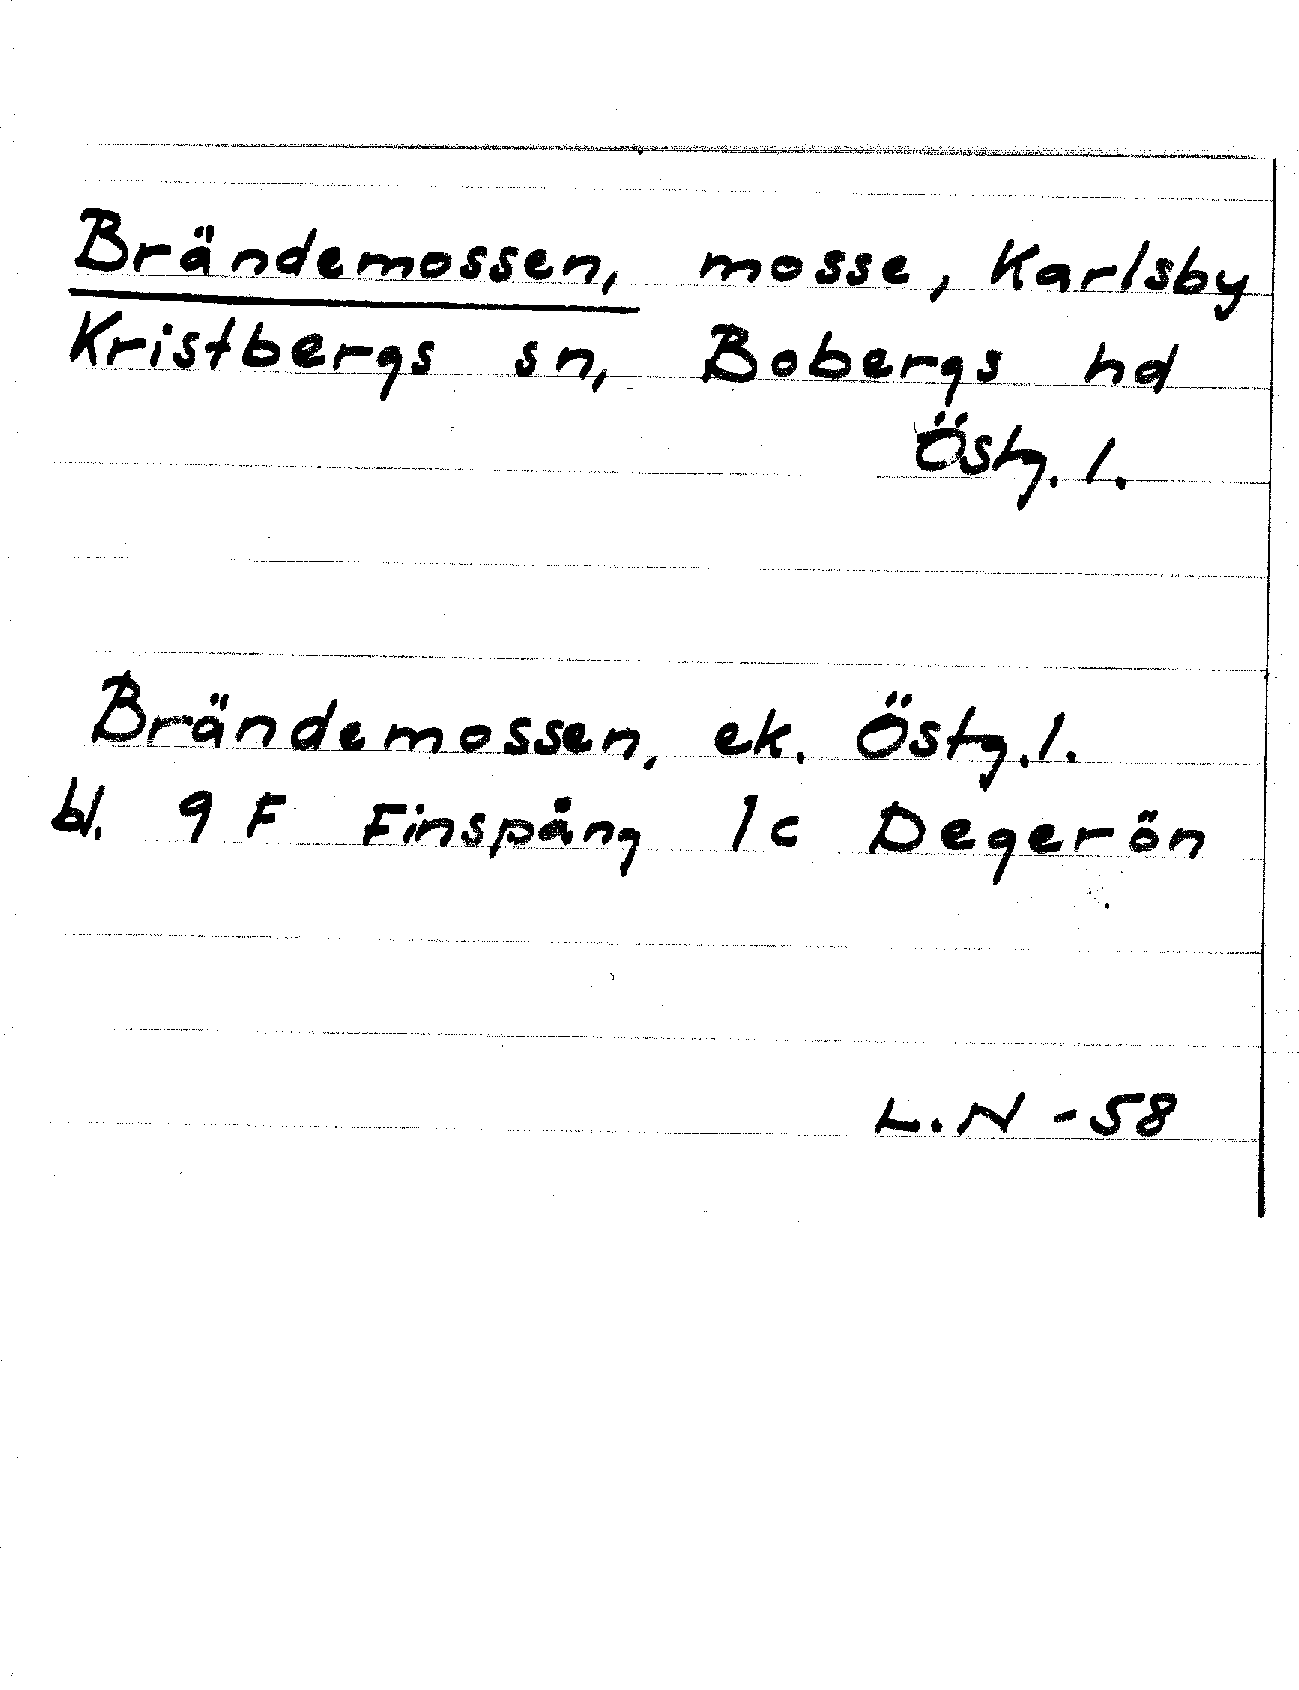 Brändemossen, mosse, Karlsby
Kristbergs sn, Bobergs hd
Östg.l.
Brändemossen, ek. Östg.l.
bl. 9 F Finspång 1c Degerön
L.N -58